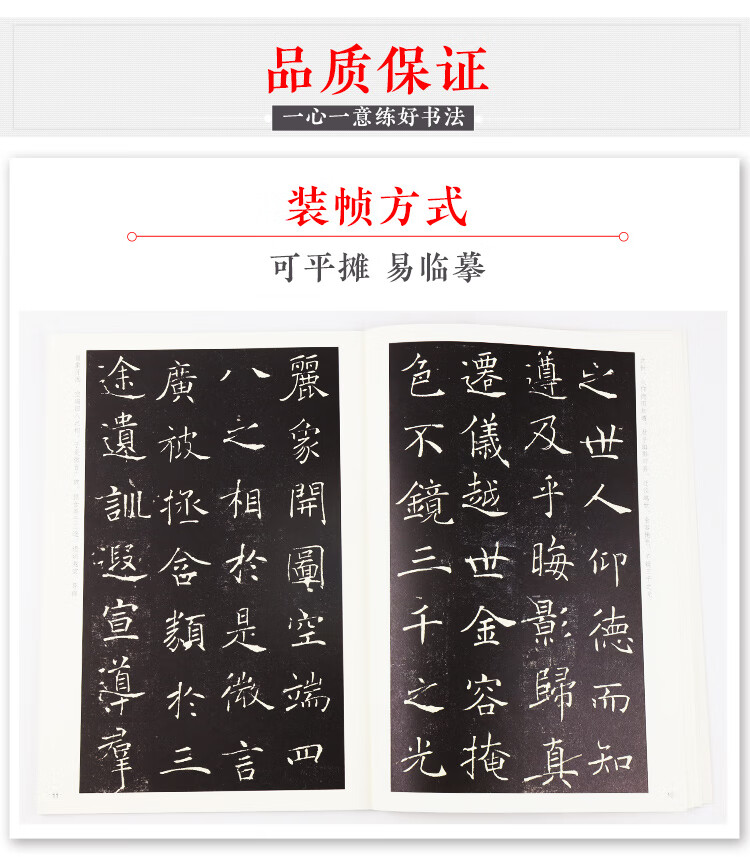 品质保证
一心一意练好书法
装帧方式
可平摊 易临摹
之世人仰德而知
遵及乎晦影歸真
遷儀越世金容掩
色不鏡三千之光
麗象開圖空端四
八之相於是微言
廣被拯含類於三
途遺訓遐宣導羣